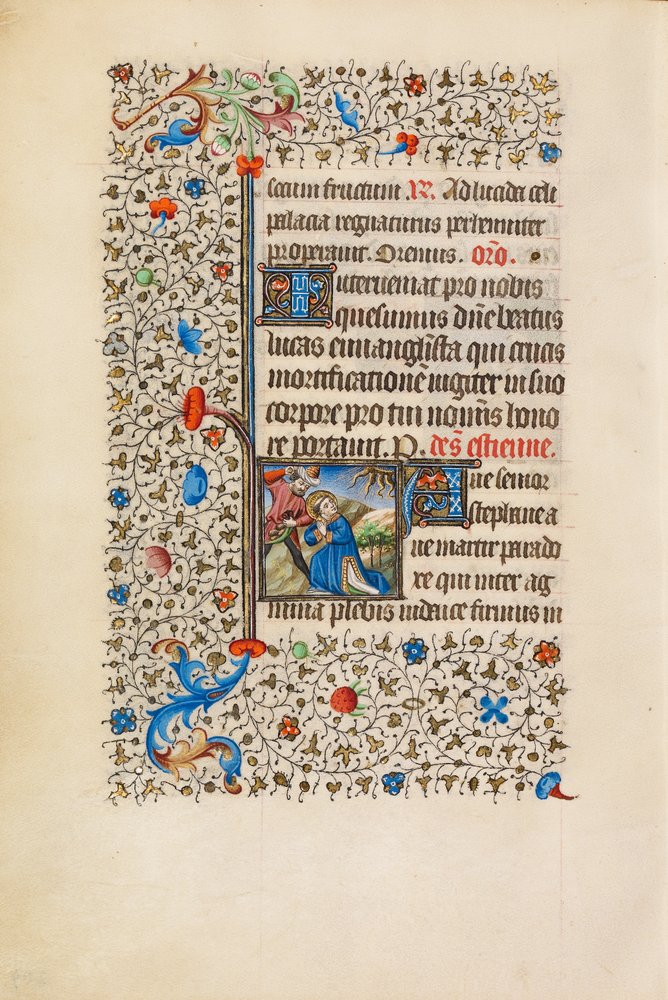 ccum fructum .V. Ad lucida celi
palacia regnaturus perhenniter
properauit. Oremus. orō.
Interueniat pro nobis
quesumus dn̄e beatus
lucas euuanglīsta qui crucis
mortificationē iugiter in suo
corpore pro tui noīnis hono
re portauit. P. de s̄ estienne.
Aue senior
stephane a
ue martir parado
xe qui inter ag
mina plebis iudaice firmus in